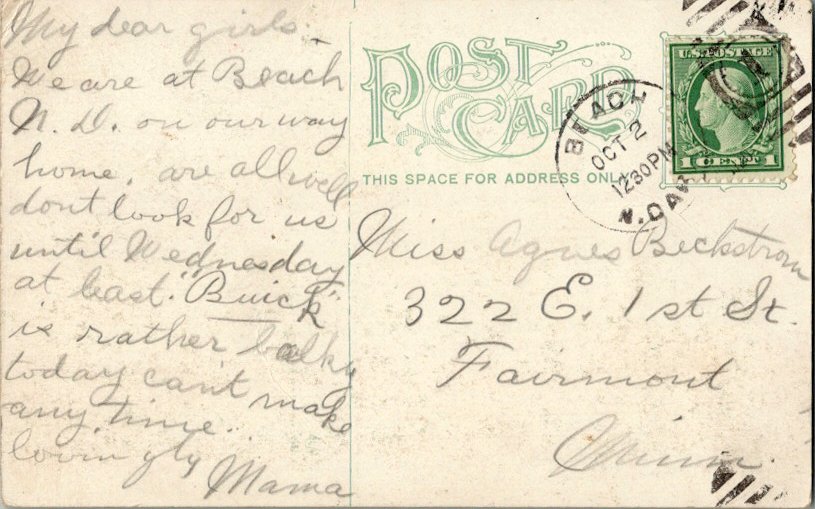 My dear girls -
We are at Beach
N. D. on our way
home, are all well
dont look for us
until Wednesday
at least. "Buick"
is rather balky
today can't make
any time.
lovingly
Mama
POST
CARD
THIS SPACE FOR ADDRESS ONLY
BEACH
OCT 2
1230PM
N. DAK
U.S. POSTAGE
1 CENT 1
Miss Agnes Beckstrom
322 E. 1st St.
Fairmont
Minn.